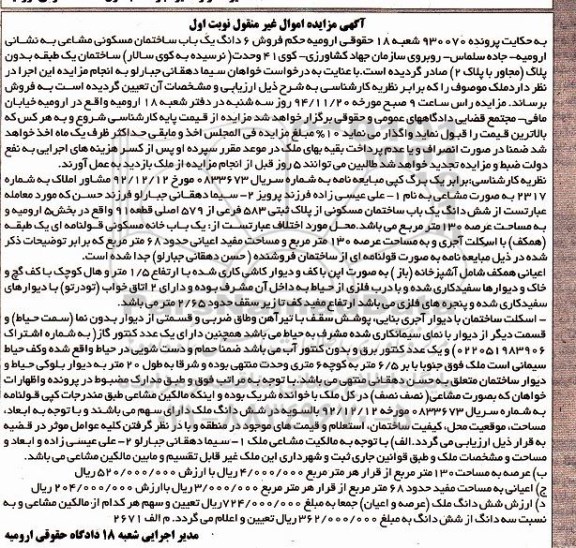 آگهی مزایده اموال غیر منقول نوبت اول
به حکایت پرونده ۹۳۰۰۷۰ شعبه ۱۸ حقوقی ارومیه حکم فروش ۶ دانگ یک باب ساختمان مسکونی مشاعی به نشانی
ارومیه- جاده سلماس- روبروی سازمان جهاد کشاورزی- کوی ۴۱ وحدت (نرسیده به کوی سالار) ساختمان یک طبقه بدون
پلاک (مجاور با پلاک ۲) صادر گردیده است. با عنایت به درخواست خواهان سیما دهقانی جبارلو به انجام مزایده این اجرا در
نظر دارد ملک موصوف را که برابر نظریه کارشناسی به شرح ذیل ارزیابی و مشخصات آن تعیین گردیده است به فروش
برساند. مزایده راس ساعت ۹ صبح مورخه ۹۴/۱۱/۲۰ روز سه شنبه در دفتر شعبه ۱۸ ارومیه واقع در ارومیه خیابان
مافی- مجتمع قضایی دادگاههای عمومی و حقوقی برگزار خواهد شد مزایده از قیمت پایه کارشناسی شروع و به هر کس که
بالاترین قیمت را قبول نماید واگذار می نماید ۱۰٪ مبلغ مزایده فی المجلس اخذ و مابقی حداکثر ظرف یک ماه اخذ خواهد
شد ضمنا در صورت انصراف و یا عدم پرداخت بقیه بهای ملک در موعد مقرر سپرده او پس از کسر هزینه های اجرایی به نفع
دولت ضبط و مزایده تجدید خواهد شد طالبین می توانند ۵ روز قبل از انجام مزایده از ملک بازدید به عمل آورند.
نظریه کارشناسی: برابر یک برگ کپی مبایعه نامه به شماره سریال ۰۸۳۳۶۷۳ مورخ ۹۲/۱۲/۱۲ مشاور املاک به شماره
۲۳۱۷ به صورت مشاعی به نام ۱- علی عیسی زاده فرزند پرویز ۲- سیما دهقانی جبارلو فرزند حسن که مورد معامله
عبارتست از شش دانگ یک باب ساختمان مسکونی از پلاک ثبتی ۵۸۳ فرعی از ۵۷۹ اصلی قطعه ۹۱ واقع در بخش ۵ ارومیه و
به مساحت عرصه ۱۳۰ متر مربع می باشد. محل مورد اختلاف عبارتست از: یک باب خانه مسکونی قولنامه ای یک طبقه
(همکف) با اسکلت آجری و به مساحت عرصه ۱۳۰ متر مربع و مساحت مفید اعیانی حدود ۶۸ متر مربع که برابر توضیحات ذکر
شده در ذیل مبایعه نامه به صورت قولنامه ای از ساختمان فروشنده (حسن دهقانی جبارلو) جدا شده است.
اعیانی همکف شامل آشپزخانه (باز) به صورت اپن با کف و دیوار کاشی کاری شده با ارتفاع ۱/۵ متر و هال کوچک با کف گچ و
خاک و دیوارها سفیدکاری شده و با درب فلزی از حیاط به داخل آن مشرف بوده و دارای ۲ اتاق خواب (تودرتو) با دیوارهای
سفیدکاری شده و پنجره های فلزی می باشد ارتفاع مفید کف تا زیر سقف حدود ۲/۶۵ متر می باشد.
- اسکلت ساختمان با دیوار آجری بنایی، پوشش سقف با تیرآهن وطاق ضربی و قسمتی از دیوار بدون نما (سمت حیاط) و
قسمت دیگر از دیوار با نمای سیمانکاری شده مشرف به حیاط می باشد همچنین دارای یک عدد کنتور گاز (به شماره اشتراک
۰۲۲۰۵۱۹۸۳۹۰۶) و یک عدد کنتور برق و بدون کنتور آب می باشد ضمنا حمام و دست شویی در حیاط واقع شده وکف حیاط
سیمانی است ملک فوق جنوبا با بر ۶/۵ متر به کوچه ۶ متری وحدت منتهی بوده و شرقا به طول ۲۰ متر به دیوار بلوکی حیاط و
دیوار ساختمان متعلق به حسن دهقانی منتهی می باشد. با توجه به مراتب فوق و طبق مدارک مضبوط در پرونده و اظهارات
خواهان که بصورت مشاعی (نصف نصف) در کل ملک با خوانده شریک بوده و اینکه مالکین مشاعی طبق مندرجات کپی قولنامه
به شماره سریال ۰۸۳۳۶۷۳ مورخه ۹۲/۱۲/۱۲ بالسویه از شش دانگ ملک دارای سهم می باشند و با توجه به ابعاد،
مساحت، موقعیت محل، کیفیت ساختمان، استعلام و قیمت های موجود در منطقه و با در نظر گرفتن کلیه عوامل موثر در قضیه
به قرار ذیل ارزیابی می گردد. الف) با توجه به مالکیت مشاعی ملک ۱- سیما دهقانی جبارلو ۲- علی عیسی زاده و ابعاد و
مساحت و مشخصات ملک و طبق قوانین جاری ثبت و شهرداری این ملک غیر قابل تقسیم و مابین مالکین مشاعی می باشد.
ب) عرصه به مساحت ۱۳۰ متر مربع از قرار هر متر مربع ۴/۰۰۰/۰۰۰ ریال با ارزش ۵۲۰/۰۰۰/۰۰۰ ریال
ج) اعیانی به مساحت مفید حدود ۶۸ متر مربع از قرار هر متر مربع ۳/۰۰۰/۰۰۰ ریال با ارزش ۲۰۴/۰۰۰/۰۰۰ ریال
د) ارزش شش دانگ ملک (عرصه و اعیان) جمعا به مبلغ ۷۲۴/۰۰۰/۰۰۰ ریال تعیین و سهم هر کدام از مالکین مشاعی و به
نسبت سه دانگ از شش دانگ به مبلغ ۳۶۲/۰۰۰/۰۰۰ ریال تعیین و اعلام می گردد. م الف ۲۶۷۱
مدیر اجرایی شعبه ۱۸ دادگاه حقوقی ارومیه